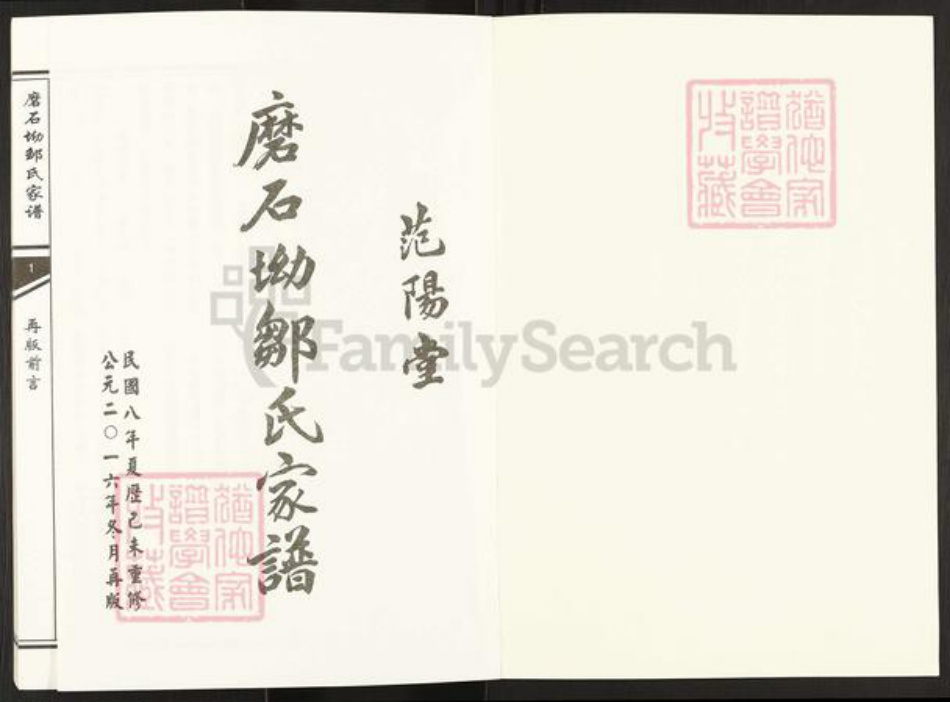 猶他家
譜學會
收藏
范陽堂
磨石坳鄒氏家譜
民國八年夏歷己未重修
公元二〇一六年冬月再版
猶他家
譜學會
收藏
磨石坳邹氏家谱
1
再版前言
FamilySearch